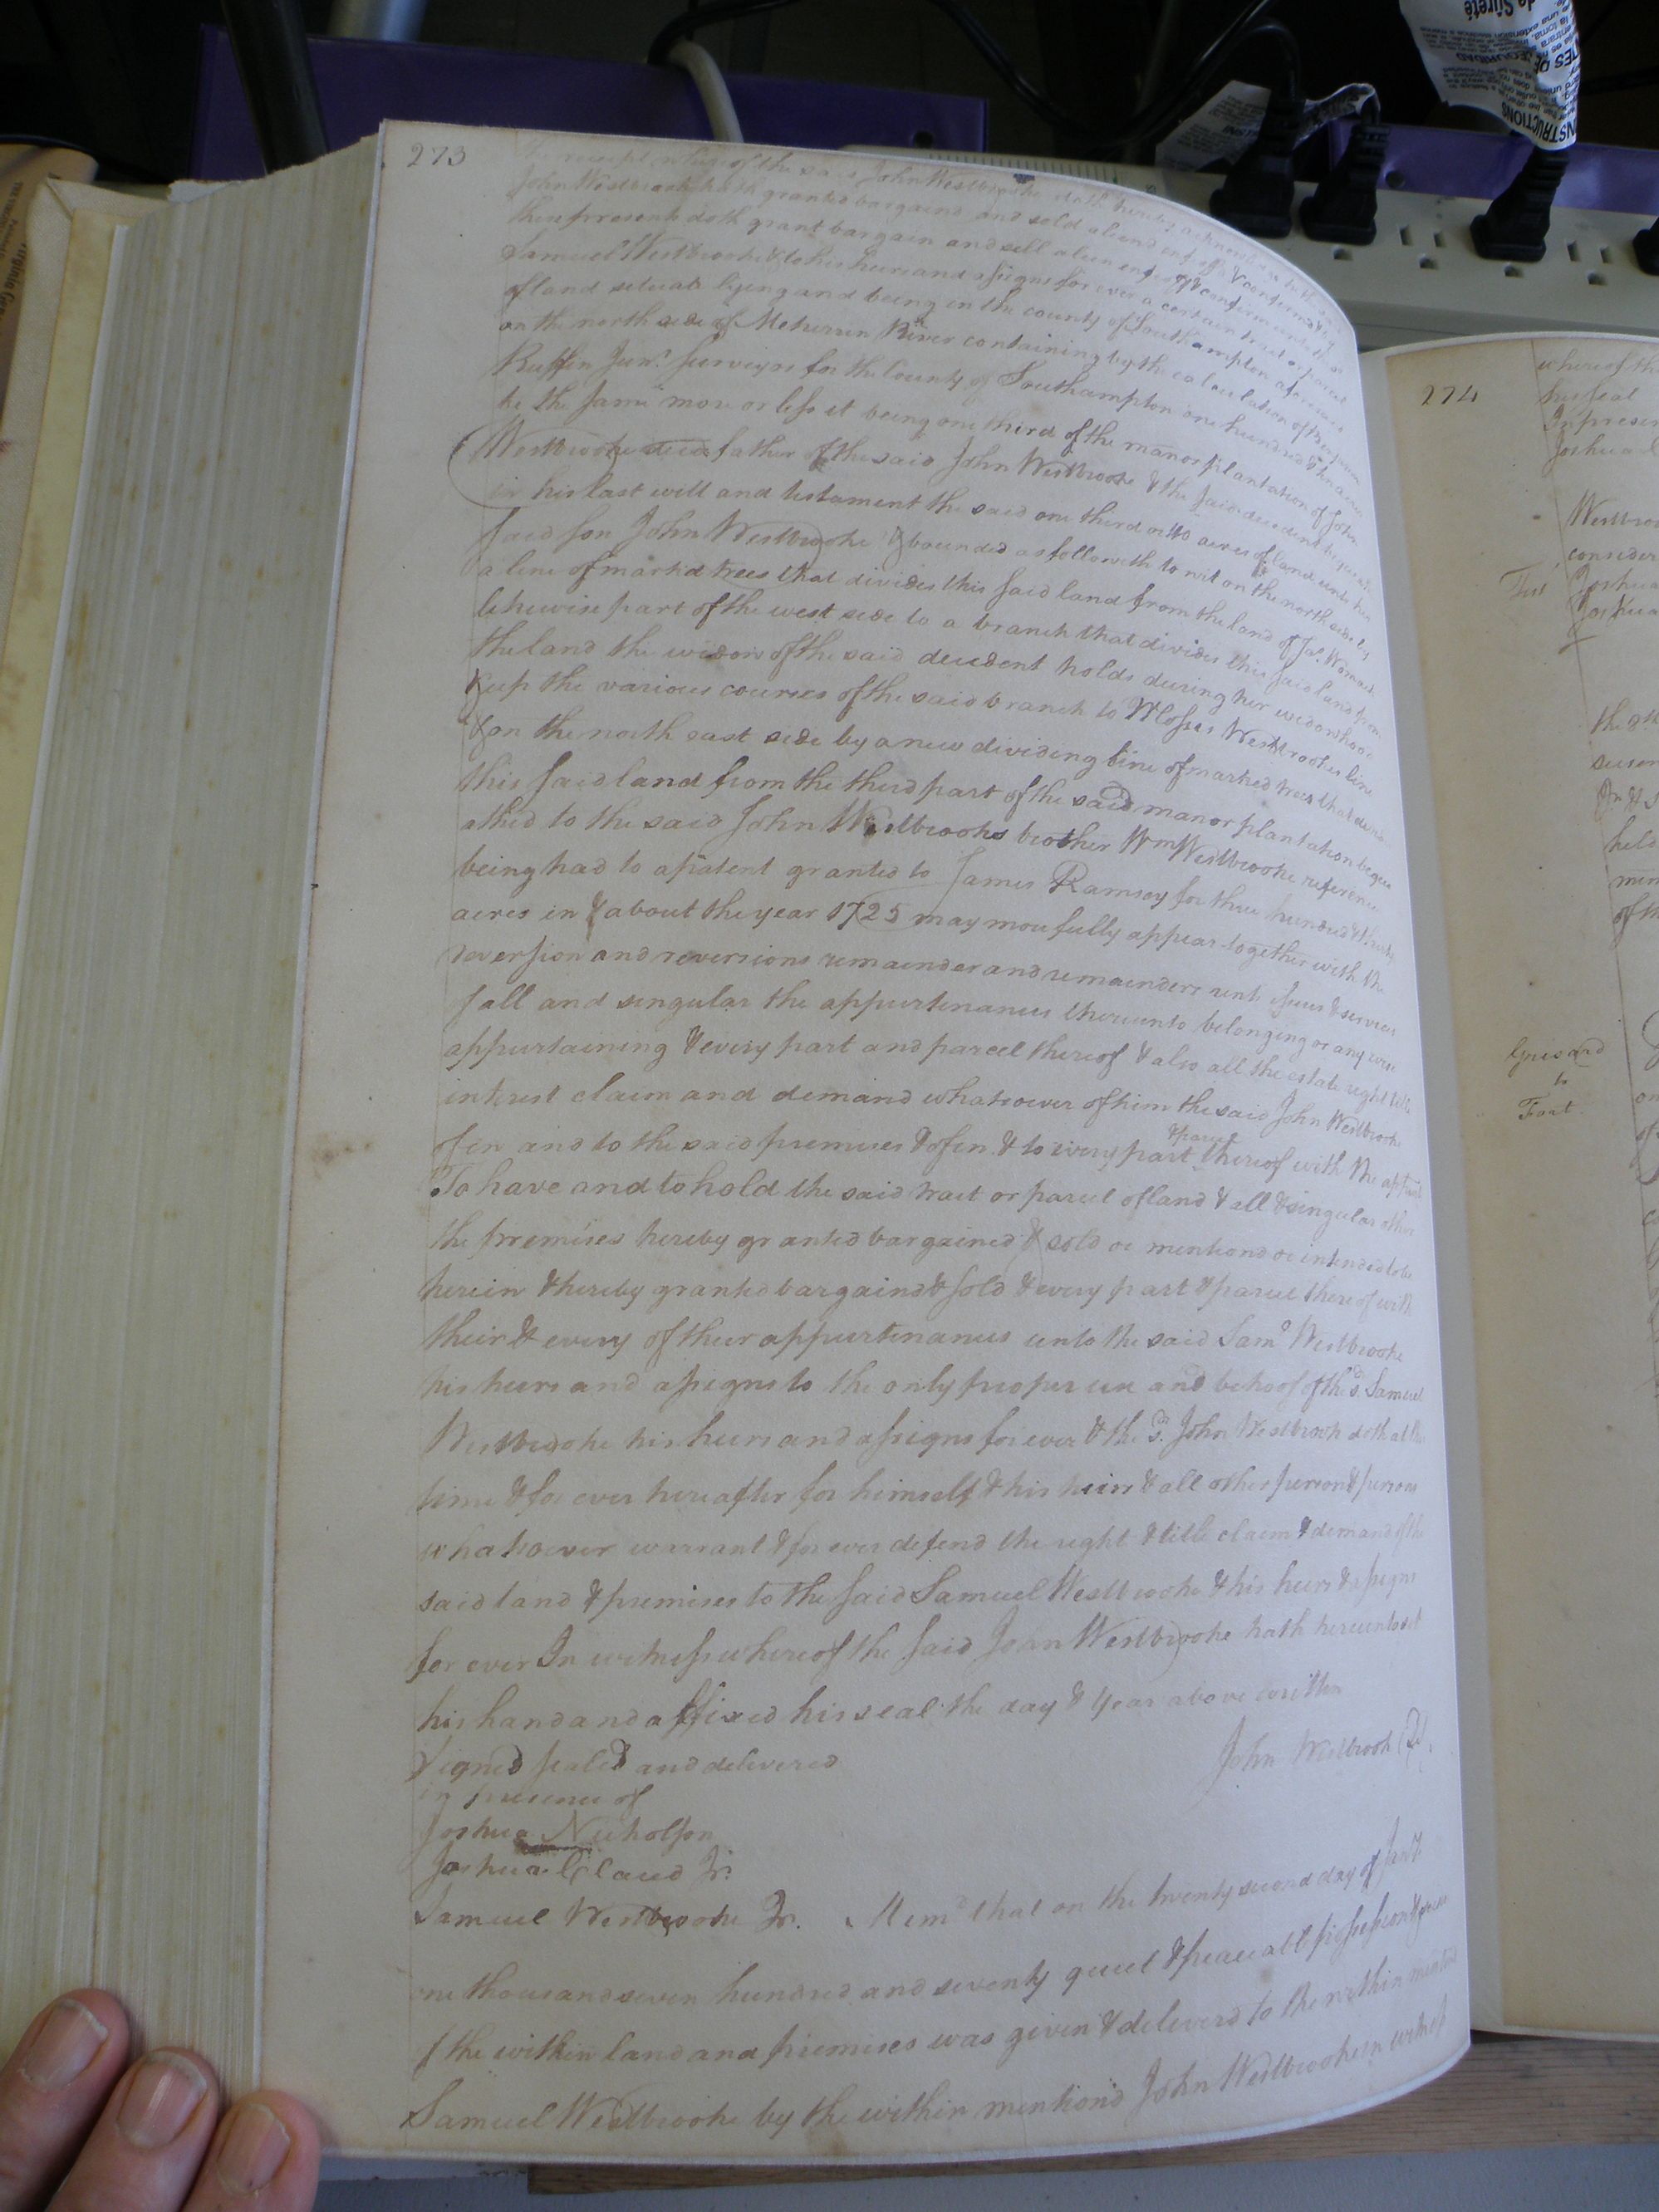 273
receipt whereof the said John Westbrooke doth hereby acknowledge
John Westbrooke hath granted bargaind and sold aliend
these presents doth grant bargain and sell alien enfeoff & confirm unto the
Samuel Westbrooke & to his heirs and assigns for ever a certain tract or parcel
of land setuate lying and being in the county of Southampton aforesaid
on the north side of Meherrin River containing by the calculation of Benjamin
Ruffin Junr. Surveyor for the County of Southampton one hundred & ten acres
be the same more or less it being one third of the manor plantation of John
Westbrooke decd. father of the said John Westbrooke & the said decedent
in his last will and testament the said one third or 110 acres of land unto his
said son John Westbrooke & bounded as followeth to wit on the north side by
a line of markd trees that divides this said land from the land of Jas. Womack
likewise part of the west side to a branch that divides this said land from
the land the widow of the said decedent holds during her widowhood
& up the various courses of the said branch to Mosses Westbrookes line
& on the north east side by a new dividing line of marked trees that
this said land from the third part of the said manor plantation beque
athed to the said John Westbrooks brother Wm Westbrooke reference
being had to a patent granted to James Ramsey for three hundred & thirty
acres in & about the year 1725 may more fully appear together with the
reversion and reversions remainder and remainders rents issues & services
of all and singular the appurtenances thereunto belonging or any wise
appurtaining & every part and parcel thereof & also all the estate right title
interest claim and demand whatsoever of him the said John Westbrooke
of in and to the said premises & of in & to every part & parcel thereof with the appurts
To have and to hold the said tract or parcel of land & all & singular other
the premises hereby granted bargained & sold or mentiond or intended to be
herein & hereby granted bargaind & sold & every part & parcel thereof with
their & every of their appurtenances unto the said Saml Westbrooke
his heirs and assigns to the only proper use and behoof of the sd. Samuel
Westbrooke his heirs and assigns for ever & the sd. John Westbrook doth at this
time & for ever hereafter for himself & his heirs & all other person & persons
whatsoever warrant & for ever defend the right & title claim & demand of the
said land & premises to the said Samuel Westbrooke & his heirs & assigns
for ever In witness whereof the said John Westbrooke hath hereunto set
his hand and affixed his seal the day & year above written
Signed sealed and delivered
John Westbrook
in presence of
Joshua Nicholson
Joshua Claud Jr.
Samuel Westbrooke Jr. Memd that on the twenty second day of Jany
one thousand seven hundred and seventy quiet & peaceable possession &
of the within land and premises was given & deliverd to the within mentiond
Samuel Westbrooke by the within mentiond John Westbrooke in witness
274
whereof th
his seal
In presen
Joshua
Westbroo
consider
Test
Joshua
Joshua
the
held
min
of th
Grizard
to
Fort
INSTRUCTIONS
de Sûreté